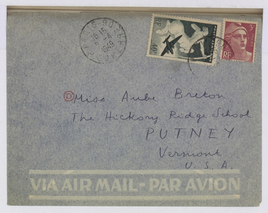 Miss Aube Breton
The Hickory Ridge School
PUTNEY
Vermont
U.S.A
VIA AIR MAIL - PAR AVION